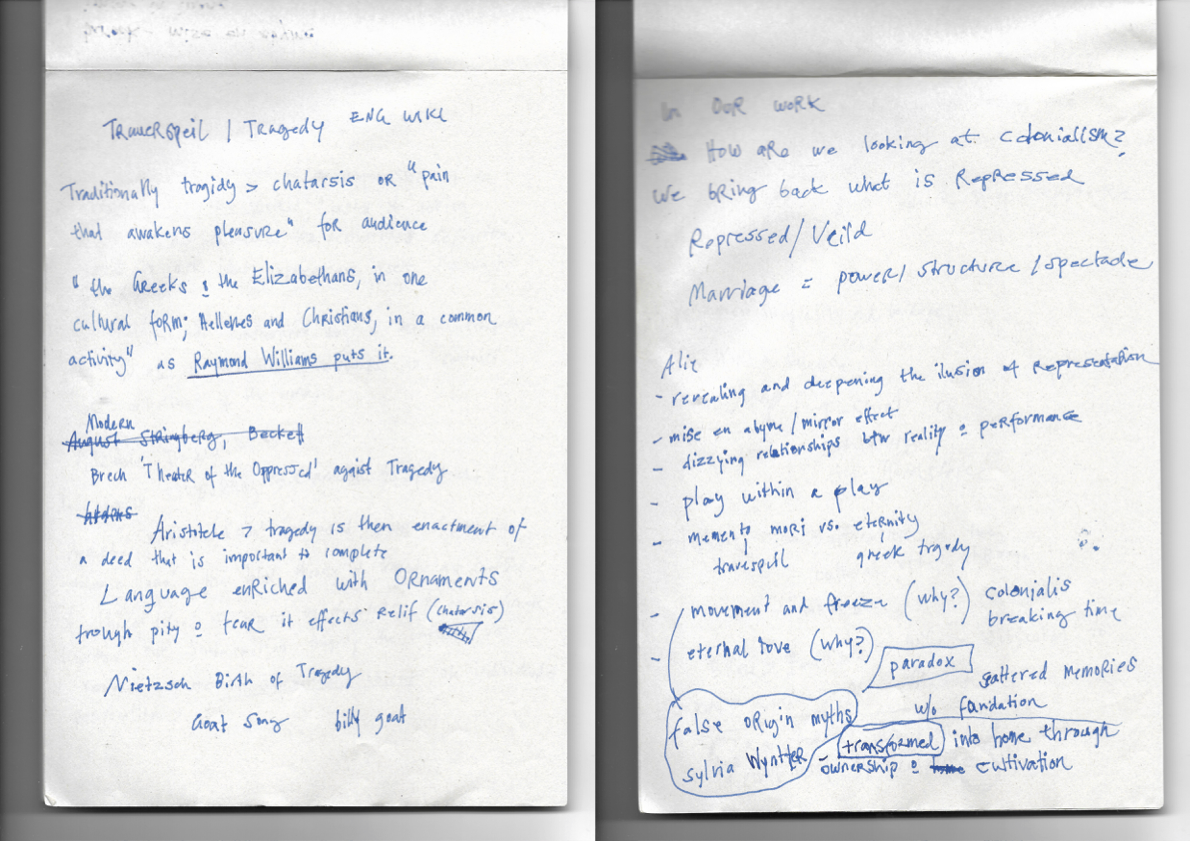 TRAUERSpeil / TRAgedy ENG WIKI
Traditionally tragidy > chatarsis OR "pain
that awakens pleasure" for audience
"the Greeks & the Elizabethans, in one
cultural form; Hellenes and Christians, in a common
activity" as Raymond Williams puts it.
Modern
August Stringberg, Beckett
Brech 'Theater of the Oppressed' agaist Tragedy
Aristotele > tragedy is then enactment of
a deed that is important to complete
Language enriched with Ornaments
trough pity & fear it effects relif (chatarsis)
Nietzsch Birth of Tragedy
Goat song billy goat
In OUR WORK
How are we looking at colonialism?
we bring back what is Repressed
Repressed/Veild
Marriage = power/structure/spectacle
- revealing and deepening the ilusion of Representation
- mise en abyme/mirror effect
- dizzying relationships btw reality & performance
- play within a play
- memento mori vs. eternity
travespeil greek trgedy
- movement and freeze (why?) colonialis
breaking time
- eternal love (why?)
paradox
sattered memories
w/o fundation
false origin myths
sylvia Wyntter
transformed into home through
ownership & cultivation